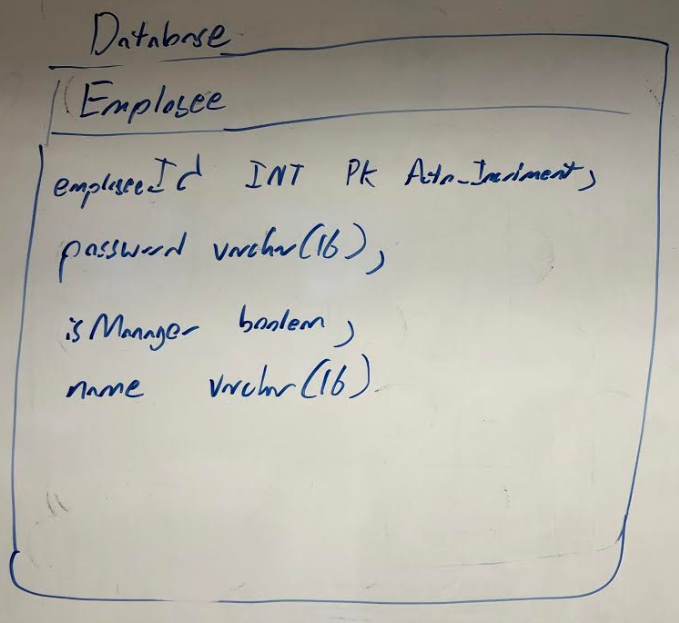 Database
Employee
employeeId INT PK Auto_Incriment,
password varchar(16),
isManager boolean,
name varchar(16)